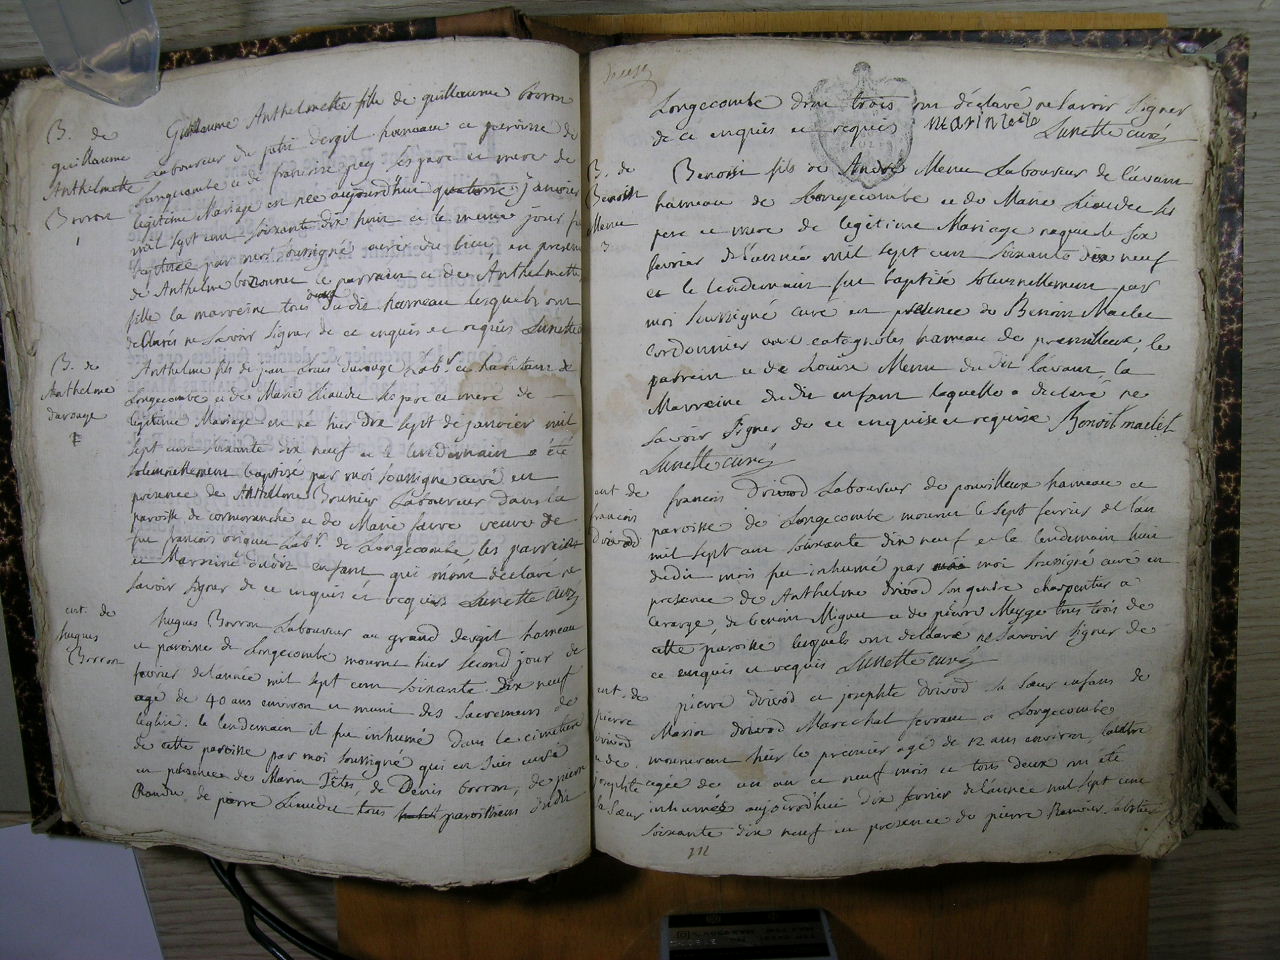 B. de
guillaume
Anthelmette
Borron
Guillaume Anthelmette fille de guillaume Borron
Laboureur du petit dergit hameau et paroisse de
Longecombe et de francoise grey ses pere et mere de
legitime Mariage est nee aujourd'hui quatorze janvier
mil sept cent soixante dix huit et le meme jour fu
baptisee par moi soussigné curé du lieu, en presence
de Anthelme bozonnet le parrain et de Anthelmette
fille la marreine tous deux du dit hameau lesquels ont
déclarés ne savoir signer de ce enquis et requis Lunette
B. de
Anthelme
davauge
Anthelme fils de jean Louis davauge Lab.r et habitant de
Longecombe et de Marie Liaudet ses pere et mere de
legitime Mariage est ne hier dix sept de janvier mil
sept cent soixante dix neuf et le lendemain a été
solemnellement baptisé par moi soussigné curé en
presence de Anthelme Brunier Laboureur dans la
paroisse de cormoranche et de Marie favre veuve de
feu francois Lab.r de Longecombe les parrein
et Marreine dudit enfant qui m'ont déclaré ne
savoir signer de ce enquis et requis Lunette curé
ent. de
hugues
Borron
hugues Borron Laboureur au grand dergit hameau
et paroisse de Longecombe mourut hier second jour de
fevrier de l'année mil sept cent soixante dix neuf
agé de 40 ans environ et muni des sacremens de
leglise. le lendemain il fut inhumé dans le cimetiere
de cette paroisse par moi soussigné qui en suis curé
en presence de Marin Têtes, de Denis borron, de pierre
Ramdu de pierre Liaudet tous paroissiens dudit
Longecombe dont trois ont déclaré ne savoir signer
de ce enquis et requis marin tete Lunette curé
B. de
Benoit
Menu
Benoit fils de André Menu Laboureur de lavant
hameau de Longecombe et de Marie Liaudet ses
pere et mere de legitime Mariage naquit le six
fevrier de l'année mil sept cent soixante dix neuf
et le lendemain fut baptisé solemnellement par
moi soussigné curé en presence de Benoit Maclet
Cordonnier aux catagnoles hameau de prémilleux, le
parrein et de Louise Menu du dit lavant, la
Marreine du dit enfant laquelle a declaré ne
savoir signer de ce enquise et requise Benoit maclet
Lunette curé
ent. de
francois
drivod
francois drivod Laboureur de pouvilleux hameau et
paroisse de Longecombe mourut le sept fevrier de l'an
mil sept cent soixante dix neuf et le lendemain huit
dudit mois fut inhumé par moi soussigné curé en
presence de Anthelme drivod son gendre charpentier a
Cerarge, de benoit Miguet et de pierre Meyge tous trois de
cette paroisse lesquels ont declare ne savoir signer de
ce enquis et requis Lunette curé
ent. de
pierre
drivod
et de
josephte
la sœur
pierre drivod et josephte drivod sa sœur enfans de
Marion drivod Marechal ferrant a Longecombe
moururent hier le premier agé de 12 ans environ, l'autre
agée de un an et neuf mois et tous deux ont été
inhumés aujourd'hui dix fevrier de l'année mil sept cent
soixante dix neuf en presence de pierre Ramier